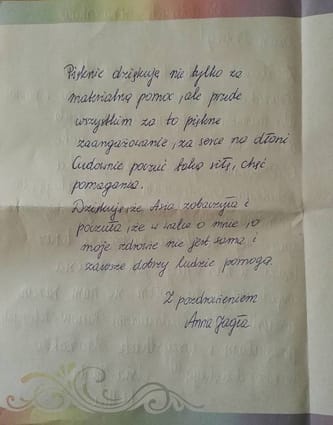 Pięknie dziękuję nie tylko za
materialną pomoc, ale przede
wszystkim za to piękne
zaangażowanie, za serce na dłoni
Cudownie poczuć taką siłę, chęć
pomagania.
Dziękuję, że Asia zobaczyła i
poczuła, że w walce o mnie, o
moje zdrowie nie jest sama i
zawsze dobrzy ludzie pomogą.
Z pozdrowieniem
Anna Jagła